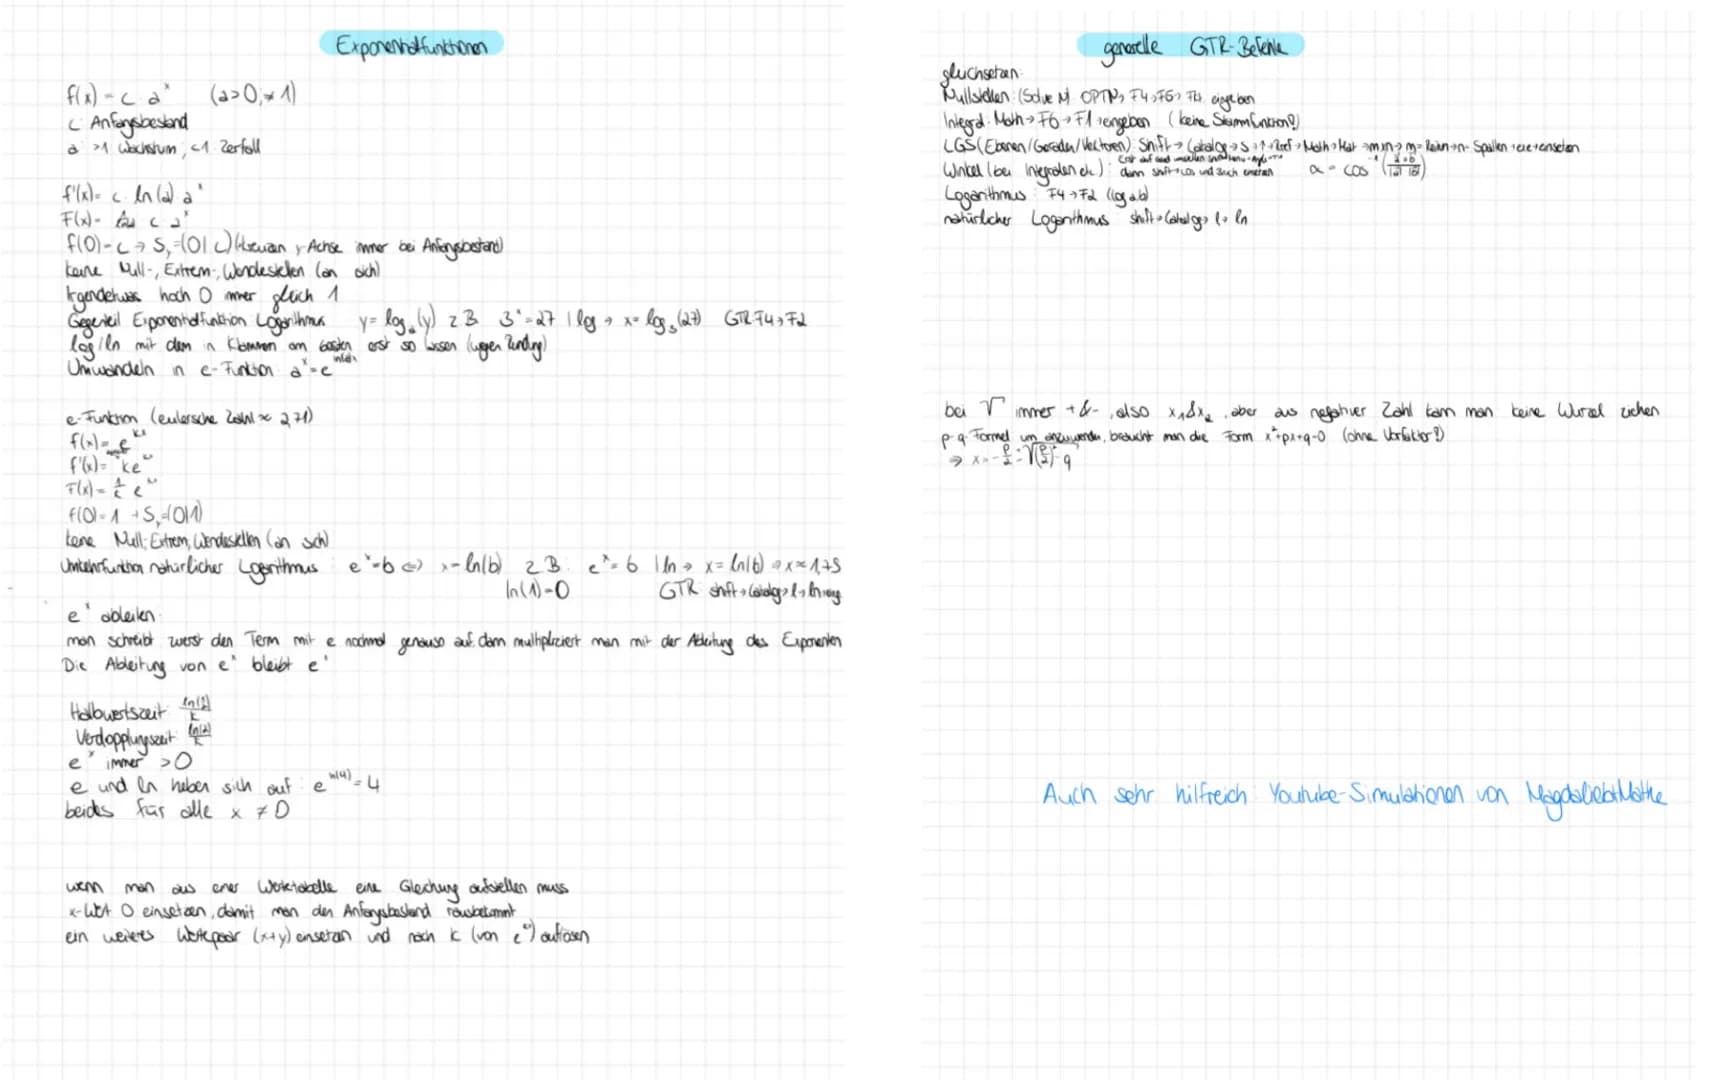 Exponentialfunktionen
f(x) = c · a^x (a>0, ≠1)
c Anfangsbestand
a >1 Wachstum, <1 Zerfall
f'(x) = c · ln(a) · a^x
F(x) = c · a^x
f(0) = c → Sy = (0|c) y-Achse immer bei Anfangsbestand)
keine Null-, Extrem-, Wendestellen (an sich)
Irgendetwas hoch 0 immer gleich 1
Gegenteil Exponentialfunktion Logarithmus y = log_a(y) z.B. 3^x = 27 | log → x = log_3(27) GTR F4 → F2
log/ln mit dem in Klammern am besten erst so lassen (wegen Rundung)
Umwandeln in e-Funktion a^x = e^ln(a)·x
e-Funktion (eulersche Zahl ≈ 2,71)
f(x) = e^kx
f'(x) = k e^kx
F(x) = 1/k e^kx
f(0) = 1 → Sy = (0|1)
keine Null-, Extrem, Wendestellen (an sich)
Umkehrfunktion natürlicher Logarithmus e^x = b ⇔ x = ln(b) z.B. e^x = 6 | ln → x = ln(6) → x ≈ 1,79
ln(1) = 0 GTR shift → Catalog → l → ln
e^x ableiten:
man schreibt zuerst den Term mit e nochmal genauso auf, dann multipliziert man mit der Ableitung des Exponenten
Die Ableitung von e^x bleibt e^x
Halbwertszeit: ln(½)/k
Verdopplungszeit: ln(2)/k
e^x immer >0
e und ln heben sich auf: e^ln(4) = 4
beides für alle x ≠ 0
wenn man aus einer Wertetabelle eine Gleichung aufstellen muss
x-Wert 0 einsetzen, damit man den Anfangsbestand rausbekommt
ein weiteres Wertepaar (x+y) einsetzen und nach k (von e^kx) auflösen
generelle GTR-Befehle
gleichsetzen:
Nullstellen: (Solve N) OPTN → F4 → F6 → eingeben
Integral: Math → F6 → F1 → eingeben (keine Stammfunktion?)
LGS (Ebenen/Geraden/Vektoren): Shift → Catalog → S → ↑ → Rref → Math → Mat → mxn → m= Reihen → n= Spalten → exe → einsetzen
Winkel (bei Integralen etc.): dann shift → cos und euch α = cos^-1 (a∘b / |a|·|b|)
Logarithmus: F4 → F2 (log a b)
natürlicher Logarithmus shift → Catalog → l → ln
bei √ immer + & -, also x₁ & x₂, aber aus negativer Zahl kann man keine Wurzel ziehen
p-q-Formel um anzuwenden, braucht man die Form x²+px+q=0 (ohne Vorfaktor?)
⇒ x = -p/2 ± √((p/2)² - q
Auch sehr hilfreich: Youtube-Simulationen von MagdaliebtMathe